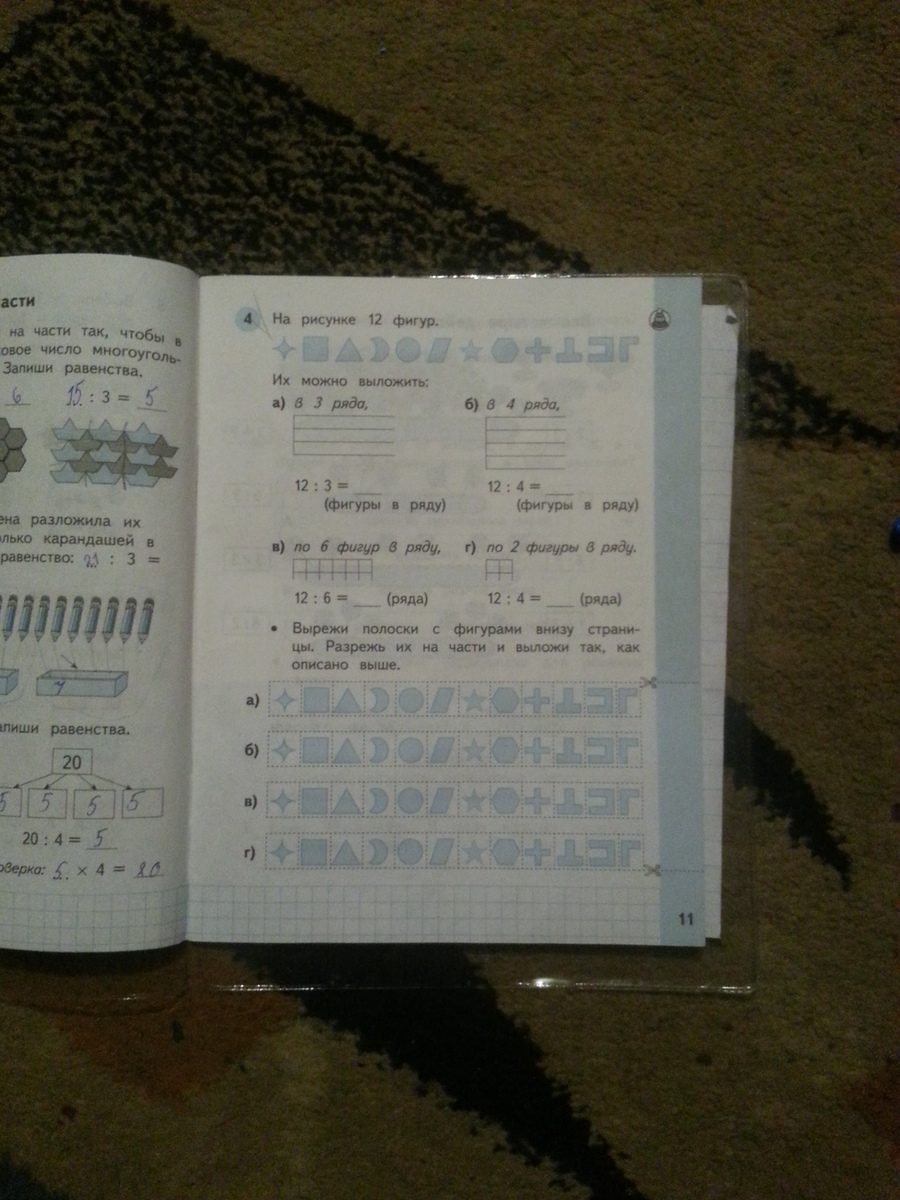 асти
на части так, чтобы в
овое число многоуголь-
Запиши равенства.
6 15 : 3 = 5
ена разложила их
олько карандашей в
равенство: : 3 =
7
апиши равенства.
20
5 5 5 5
20 : 4 = 5
оверка: 5 × 4 = 20
4 На рисунке 12 фигур.
Их можно выложить:
а) в 3 ряда, б) в 4 ряда,
12 : 3 = ___ 12 : 4 = ___
(фигуры в ряду) (фигуры в ряду)
в) по 6 фигур в ряду, г) по 2 фигуры в ряду.
12 : 6 = ___ (ряда) 12 : 4 = ___ (ряда)
• Вырежи полоски с фигурами внизу страни-
цы. Разрежь их на части и выложи так, как
описано выше.
а)
б)
в)
г)
11